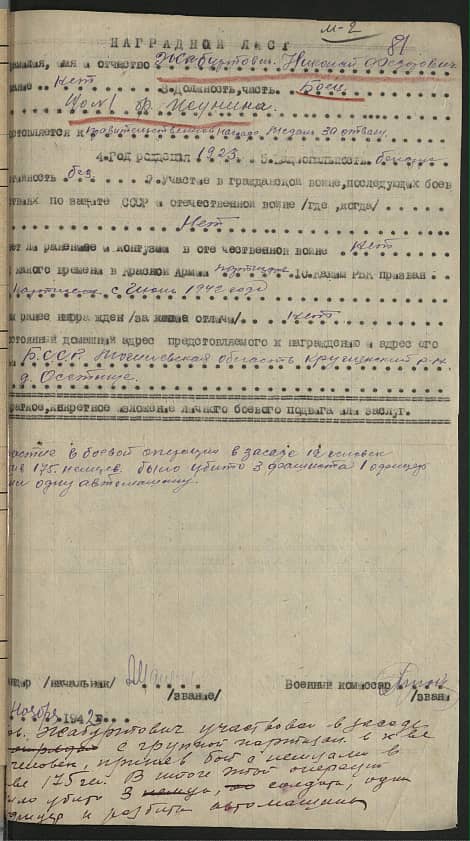 м-2
81
НАГРАДНОЙ ЛИСТ
амилия, имя и отчество Жабуртович Николай Федорович
вание нет 3. Должность, часть. Боец
По №1 Ф. Исунина.
ставляется к правительственной награде Медаль За отвагу
4. Год рождения 1923 5. Национальность белорус
тийность б/п 9. Участие в гражданской войне, последующих боев
ствиях по защите СССР и отечественной войне /где, когда/
Нет
ет ли ранения и контузии в отечественной войне Нет
какого времени в Красной Армии партизан 10. Каким РВК призван
партизан с июня 1942 года
м ранее награжден /за какие отличи/ Нет
стоянный домашний адрес представляемого к награждению и адрес его
Б.С.С.Р. Могилевская область Круглянский р-н.
д.
раткое, конкретное изложение личного боевого подвига или заслуг.
астие в боевой операции в засаде 12 человек
ив 175 немцев. было убито 3 фашиста 1 офицер
ли одну автомашину.
ндир /начальник/
/звание/
Военный комиссар
/звани
Ноября 1942 г.
ов. Жабуртович участвовал в засаде
с группой партизан в к-ве
человек, приняв бой с немцами в
ве 175 чел. В итоге этой операции
ыло убито 3 немца, солдата, один
фицер и разбита автомашина